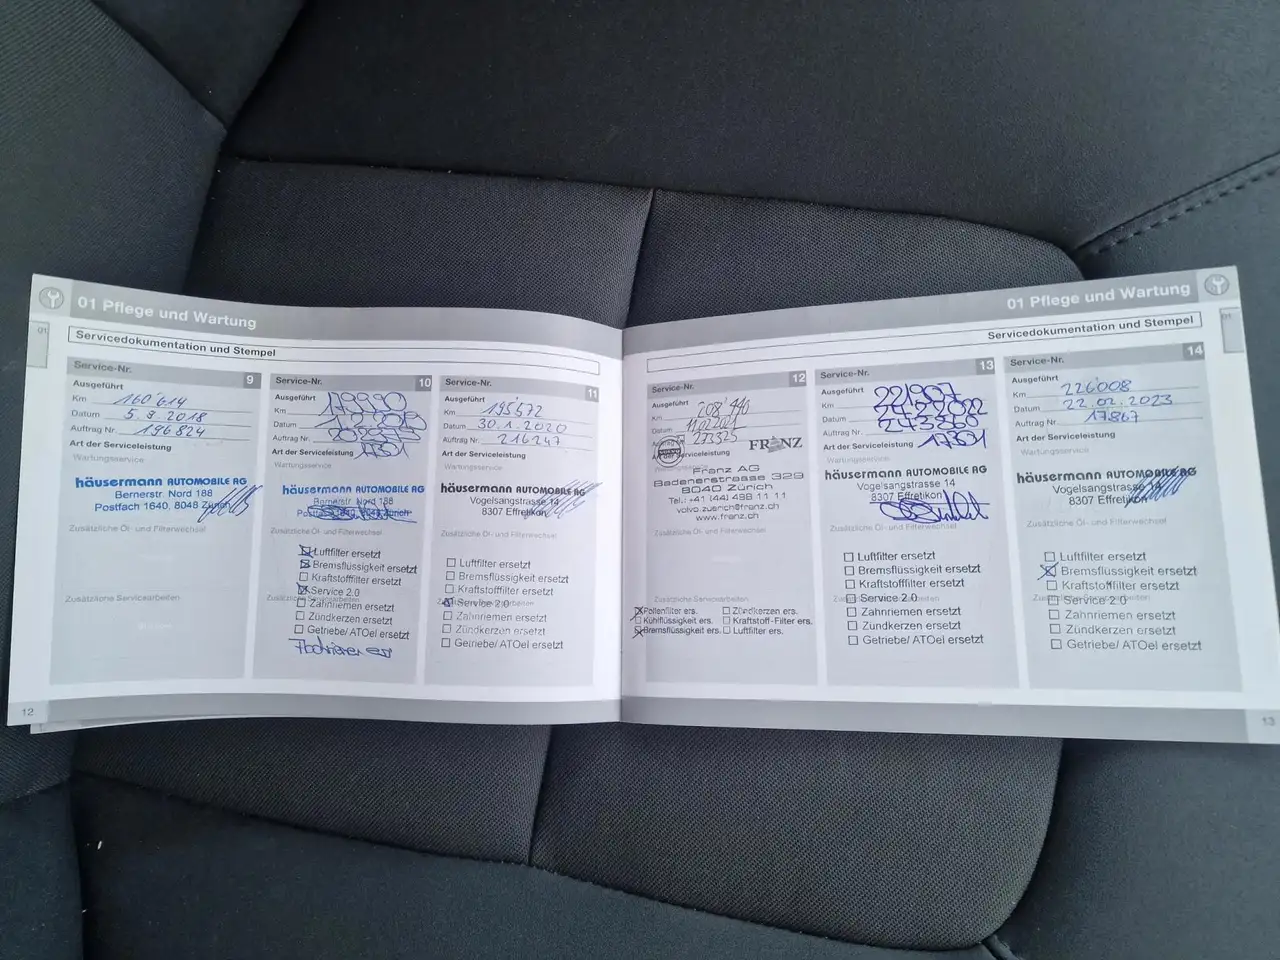 01 Pflege und Wartung
01
Servicedokumentation und Stempel
Service-Nr. 9
Ausgeführt
Km 160'614
Datum 5.9.2018
Auftrag Nr. 196824
Art der Serviceleistung
Wartungsservice
häusermann AUTOMOBILE AG
Bernerstr. Nord 188
Postfach 1640, 8048 Zürich
Zusätzliche Öl- und Filterwechsel
Zusätzliche Servicearbeiten
Service-Nr. 10
Ausgeführt
Km
Datum
Auftrag Nr.
Art der Serviceleistung
Wartungsservice
häusermann AUTOMOBILE AG
Bernerstr. Nord 188
Postfach 1640, 8048 Zürich
Zusätzliche Öl- und Filterwechsel
Luftfilter ersetzt
Bremsflüssigkeit ersetzt
Kraftstofffilter ersetzt
Service 2.0
Zahnriemen ersetzt
Zündkerzen ersetzt
Getriebe/ ATOel ersetzt
Service-Nr. 11
Ausgeführt
Km 195'572
Datum 30.1.2020
Auftrag Nr. 216247
Art der Serviceleistung
Wartungsservice
häusermann AUTOMOBILE AG
Vogelsangstrasse 14
8307 Effretikon
Zusätzliche Öl- und Filterwechsel
Luftfilter ersetzt
Bremsflüssigkeit ersetzt
Kraftstofffilter ersetzt
Service 2.0
Zahnriemen ersetzt
Zündkerzen ersetzt
Getriebe/ ATOel ersetzt
12
01 Pflege und Wartung
01
Servicedokumentation und Stempel
Service-Nr. 12
Ausgeführt
Km 208'440
Datum 11.02.2021
Auftrag Nr. 273325
Art der Serviceleistung
VOLVO
FRANZ
Franz AG
Badenerstrasse 329
8040 Zürich
Tel.: +41 (44) 498 11 11
volvo.zuerich@franz.ch
www.franz.ch
Zusätzliche Öl- und Filterwechsel
Zusätzliche Servicearbeiten
Pollenfilter ers. Zündkerzen ers.
Kühlflüssigkeit ers. Kraftstoff-Filter ers.
Bremsflüssigkeit ers. Luftfilter ers.
Service-Nr. 13
Ausgeführt
Km 221907
Datum 24.2.2022
Auftrag Nr.
Art der Serviceleistung 17301
häusermann AUTOMOBILE AG
Vogelsangstrasse 14
8307 Effretikon
Zusätzliche Öl- und Filterwechsel
Luftfilter ersetzt
Bremsflüssigkeit ersetzt
Kraftstofffilter ersetzt
Service 2.0
Zahnriemen ersetzt
Zündkerzen ersetzt
Getriebe/ ATOel ersetzt
Service-Nr. 14
Ausgeführt
Km 226'008
Datum 22.02.2023
Auftrag Nr. 17867
Art der Serviceleistung
Wartungsservice
häusermann AUTOMOBILE AG
Vogelsangstrasse 14
8307 Effretikon
Zusätzliche Öl- und Filterwechsel
Luftfilter ersetzt
Bremsflüssigkeit ersetzt
Kraftstofffilter ersetzt
Service 2.0
Zahnriemen ersetzt
Zündkerzen ersetzt
Getriebe/ ATOel ersetzt
13